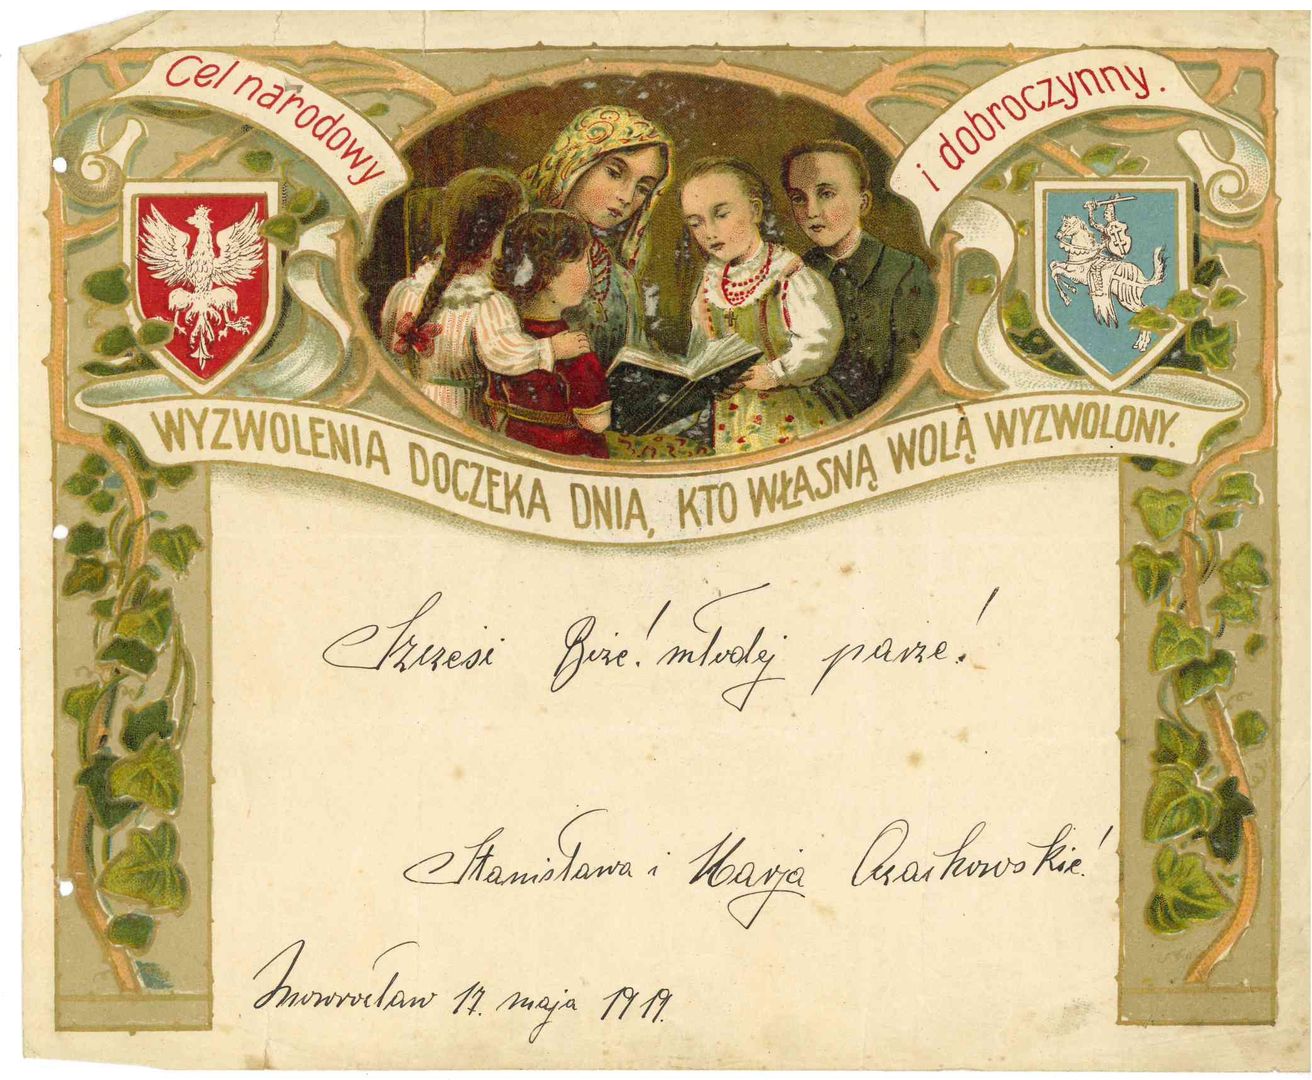 Cel narodowy
i dobroczynny.
WYZWOLENIA DOCZEKA DNIA, KTO WŁASNĄ WOLĄ WYZWOLONY.
Szczęść Boże! młodej parze!
Stanisława i Marja
Inowrocław 17. maja 1919.